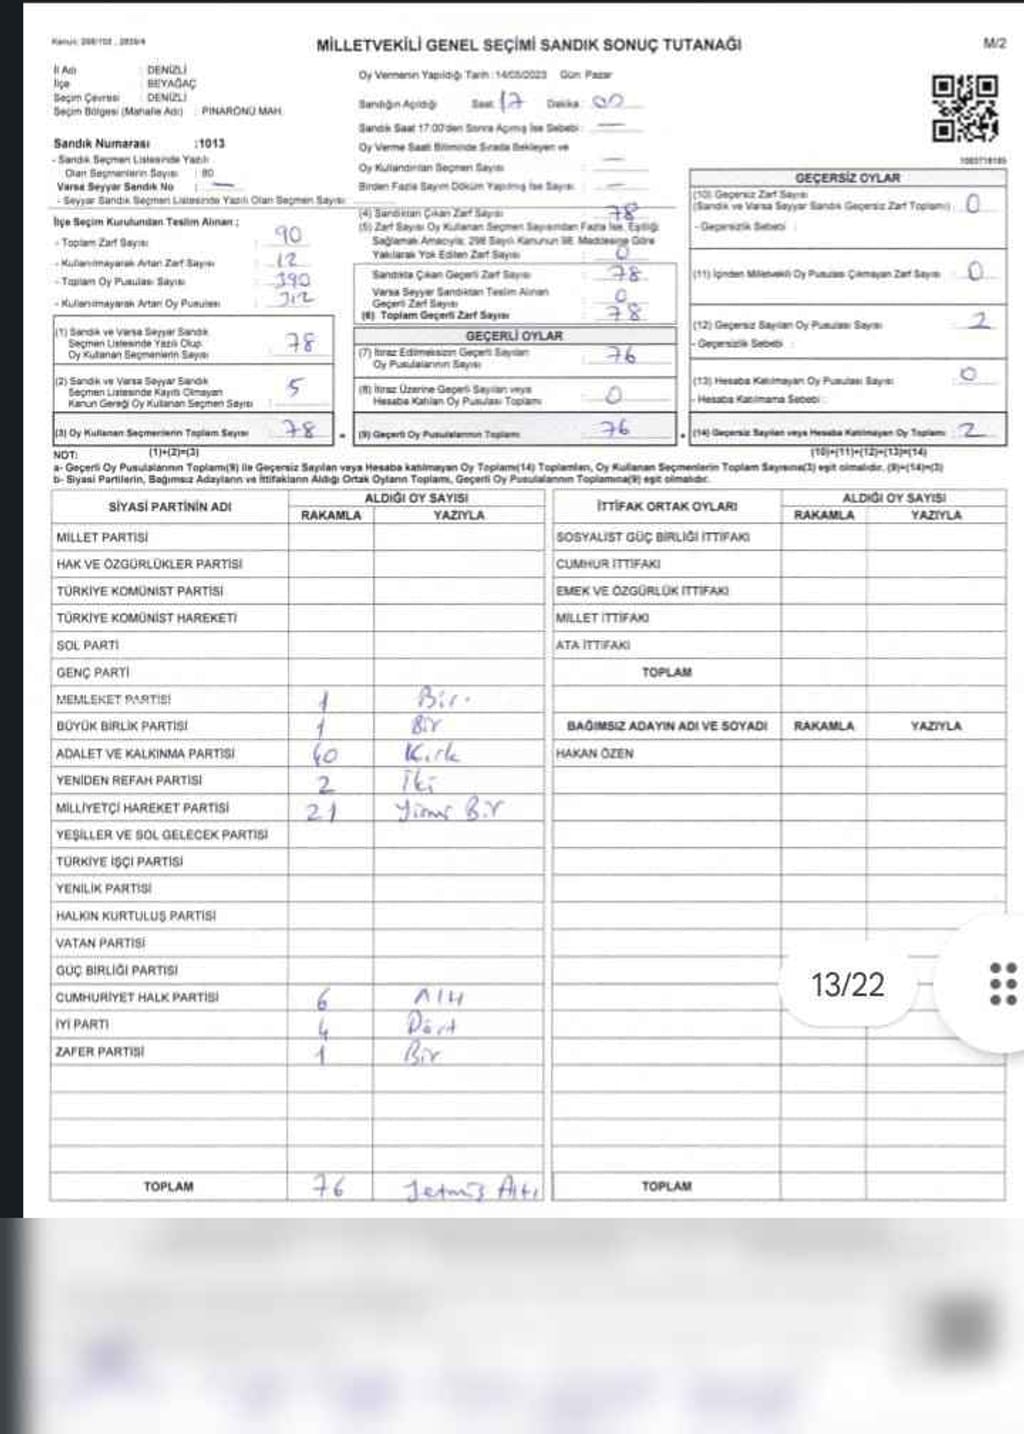 MİLLETVEKİLİ GENEL SEÇİMİ SANDIK SONUÇ TUTANAĞI
M/2
İl Adı : DENİZLİ
İlçe : BEYAĞAÇ
Seçim Çevresi : DENİZLİ
Seçim Bölgesi (Mahalle Adı) : PINARÖNÜ MAH.
Sandık Numarası :1013
- Sandık Seçmen Listesinde Yazılı
Olan Seçmenlerin Sayısı : 80
Varsa Seyyar Sandık No : —
- Seyyar Sandık Seçmen Listesinde Yazılı Olan Seçmen Sayısı :
Oy Vermenin Yapıldığı Tarih : 14/05/2023 Gün Pazar
Sandığın Açıldığı Saat 17 Dakika 00
Sandık Saat 17:00'den Sonra Açılmış İse Sebebi : —
Oy Verme Saati Bitiminde Sırada Bekleyen ve
Oy Kullandırılan Seçmen Sayısı —
Birden Fazla Sayım Döküm Yapılmış İse Sayısı : —
İlçe Seçim Kurulundan Teslim Alınan ;
- Toplam Zarf Sayısı : 90
- Kullanılmayarak Artan Zarf Sayısı : 12
- Toplam Oy Pusulası Sayısı : 390
- Kullanılmayarak Artan Oy Pusulası : 312
(1) Sandık ve Varsa Seyyar Sandık
Seçmen Listesinde Yazılı Olup
Oy Kullanan Seçmenlerin Sayısı : 78
(2) Sandık ve Varsa Seyyar Sandık
Seçmen Listesinde Kayıtlı Olmayan
Kanun Gereği Oy Kullanan Seçmen Sayısı : 5
(3) Oy Kullanan Seçmenlerin Toplam Sayısı : 78
(4) Sandıktan Çıkan Zarf Sayısı : 78
(5) Zarf Sayısı Oy Kullanan Seçmen Sayısından Fazla İse, Eşitliği
Sağlamak Amacıyla; 298 Sayılı Kanunun 98. Maddesine Göre
Yakılarak Yok Edilen Zarf Sayısı : 0
Sandıkta Çıkan Geçerli Zarf Sayısı : 78
Varsa Seyyar Sandıktan Teslim Alınan
Geçerli Zarf Sayısı : 0
(6) Toplam Geçerli Zarf Sayısı : 78
GEÇERLİ OYLAR
(7) İtiraz Edilmeksizin Geçerli Sayılan
Oy Pusulalarının Sayısı : 76
(8) İtiraz Üzerine Geçerli Sayılan veya
Hesaba Katılan Oy Pusulası Toplamı : 0
(9) Geçerli Oy Pusulalarının Toplamı : 76
GEÇERSİZ OYLAR
(10) Geçersiz Zarf Sayısı
(Sandık ve Varsa Seyyar Sandık Geçersiz Zarf Toplamı) : 0
- Geçersizlik Sebebi :
(11) İçinden Milletvekili Oy Pusulası Çıkmayan Zarf Sayısı : 0
(12) Geçersiz Sayılan Oy Pusulası Sayısı : 2
- Geçersizlik Sebebi :
(13) Hesaba Katılmayan Oy Pusulası Sayısı : 0
- Hesaba Katılmama Sebebi :
(14) Geçersiz Sayılan veya Hesaba Katılmayan Oy Toplamı : 2
NOT: (1)+(2)=(3) (10)+(11)+(12)+(13)=(14)
a- Geçerli Oy Pusulalarının Toplamı(9) ile Geçersiz Sayılan veya Hesaba katılmayan Oy Toplamı(14) Toplamları, Oy Kullanan Seçmenlerin Toplam Sayısına(3) eşit olmalıdır. (9)+(14)=(3)
b- Siyasi Partilerin, Bağımsız Adayların ve İttifakların Aldığı Ortak Oyların Toplamı, Geçerli Oy Pusulalarının Toplamına(9) eşit olmalıdır.
SİYASİ PARTİNİN ADI ALDIĞI OY SAYISI
RAKAMLA YAZIYLA
MİLLET PARTİSİ
HAK VE ÖZGÜRLÜKLER PARTİSİ
TÜRKİYE KOMÜNİST PARTİSİ
TÜRKİYE KOMÜNİST HAREKETİ
SOL PARTİ
GENÇ PARTİ
MEMLEKET PARTİSİ 1 Bir.
BÜYÜK BİRLİK PARTİSİ 1 Bir
ADALET VE KALKINMA PARTİSİ 40 Kırk
YENİDEN REFAH PARTİSİ 2 İki
MİLLİYETÇİ HAREKET PARTİSİ 21 Yirmi Bir
YEŞİLLER VE SOL GELECEK PARTİSİ
TÜRKİYE İŞÇİ PARTİSİ
YENİLİK PARTİSİ
HALKIN KURTULUŞ PARTİSİ
VATAN PARTİSİ
GÜÇ BİRLİĞİ PARTİSİ
CUMHURİYET HALK PARTİSİ 6 Altı
İYİ PARTİ 4 Dört
ZAFER PARTİSİ 1 Bir
TOPLAM 76 Yetmiş Altı
İTTİFAK ORTAK OYLARI ALDIĞI OY SAYISI
RAKAMLA YAZIYLA
SOSYALİST GÜÇ BİRLİĞİ İTTİFAKI
CUMHUR İTTİFAKI
EMEK VE ÖZGÜRLÜK İTTİFAKI
MİLLET İTTİFAKI
ATA İTTİFAKI
TOPLAM
BAĞIMSIZ ADAYIN ADI VE SOYADI RAKAMLA YAZIYLA
HAKAN ÖZEN
13/22
TOPLAM